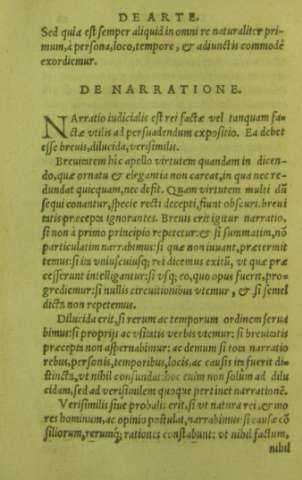 DE ARTE.
Sed quia est semper aliquid in omni re naturaliter pri-
mum, à persona, loco, tempore, & adiunctis commodè
exordiemur.
DE NARRATIONE.
NArratio iudicialis est rei factæ vel tanquam fa-
ctæ vtilis ad persuadendum expositio. Ea debet
esse breuis, dilucida, verisimilis.
Breuitatem hîc apello virtutem quandam in dicen-
do, quæ ornatu & elegantia non careat, in qua nec re-
dundat quicquam, nec desit. Quam virtutem multi dũ
sequi conantur, specie recti decepti, fiunt obscuri, breui
tatis præcepta ignorantes. Breuis erit igitur narratio,
si non à primo principio repetetur: & si summatim, nō
particulatim narrabimus: si quæ non iuuant, prætermit
temus: si ita vniuscuiusq; rei dicemus exitũ, vt quæ præ
cesserunt intelligantur: si vsq; eo, quo opus fuerit, pro-
grediemur: si nullis circuitionibus vtemur, & si semel
dicta non repetemus.
Dilucida erit, si rerum ac temporum ordinem serua
bimus: si proprijs ac vsitatis verbis vtemur: si breuitatis
præcepta non aspernabimur: ac demum si tota narratio
rebus, personis, temporibus, locis, ac causis ita fuerit di-
stincta, vt nihil confundas: hoc enim non solùm ad dilu
cidam, sed ad verisimilem quoque pertinet narrationē.
Verisimilis siue probabilis erit, si vt natura rei, & mo
res hominum, ac opinio postulat, narrabimus: si causæ cō
siliorum, rerumq; rationes constabunt: vt nihil factum,
nihil